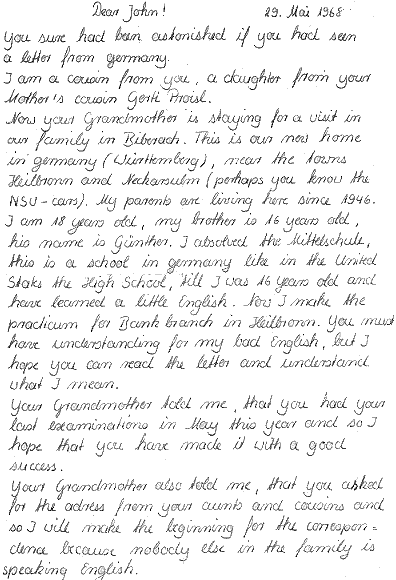 Dear John! 29. Mai 1968
You sure had been astonished if you had seen
a letter from germany.
I am a cousin from you, a daughter from your
Mother's cousin Gerti Proisl.
Now your Grandmother is staying for a visit in
our family in Biberach. This is our new home
in germany (Württemberg), near the towns
Heilbronn and Neckarsulm (perhaps you know the
NSU-cars). My parents are living here since 1946.
I am 18 years old, my brother is 16 years old,
his name is Günther. I absolved the Mittelschule,
this is a school in germany like in the United
States the High School, till I was 16 years old and
have learned a little English. Now I make the
practicum for Bank branch in Heilbronn. You must
have understanding for my bad English, but I
hope you can read the letter and understand
what I mean.
Your Grandmother told me, that you had your
last examinations in May this year and so I
hope that you have made it with a good
success.
Your Grandmother also told me, that you asked
for the adress from your aunts and cousins and
so I will make the beginning for the correspon=
dence because nobody else in the family is
speaking English.